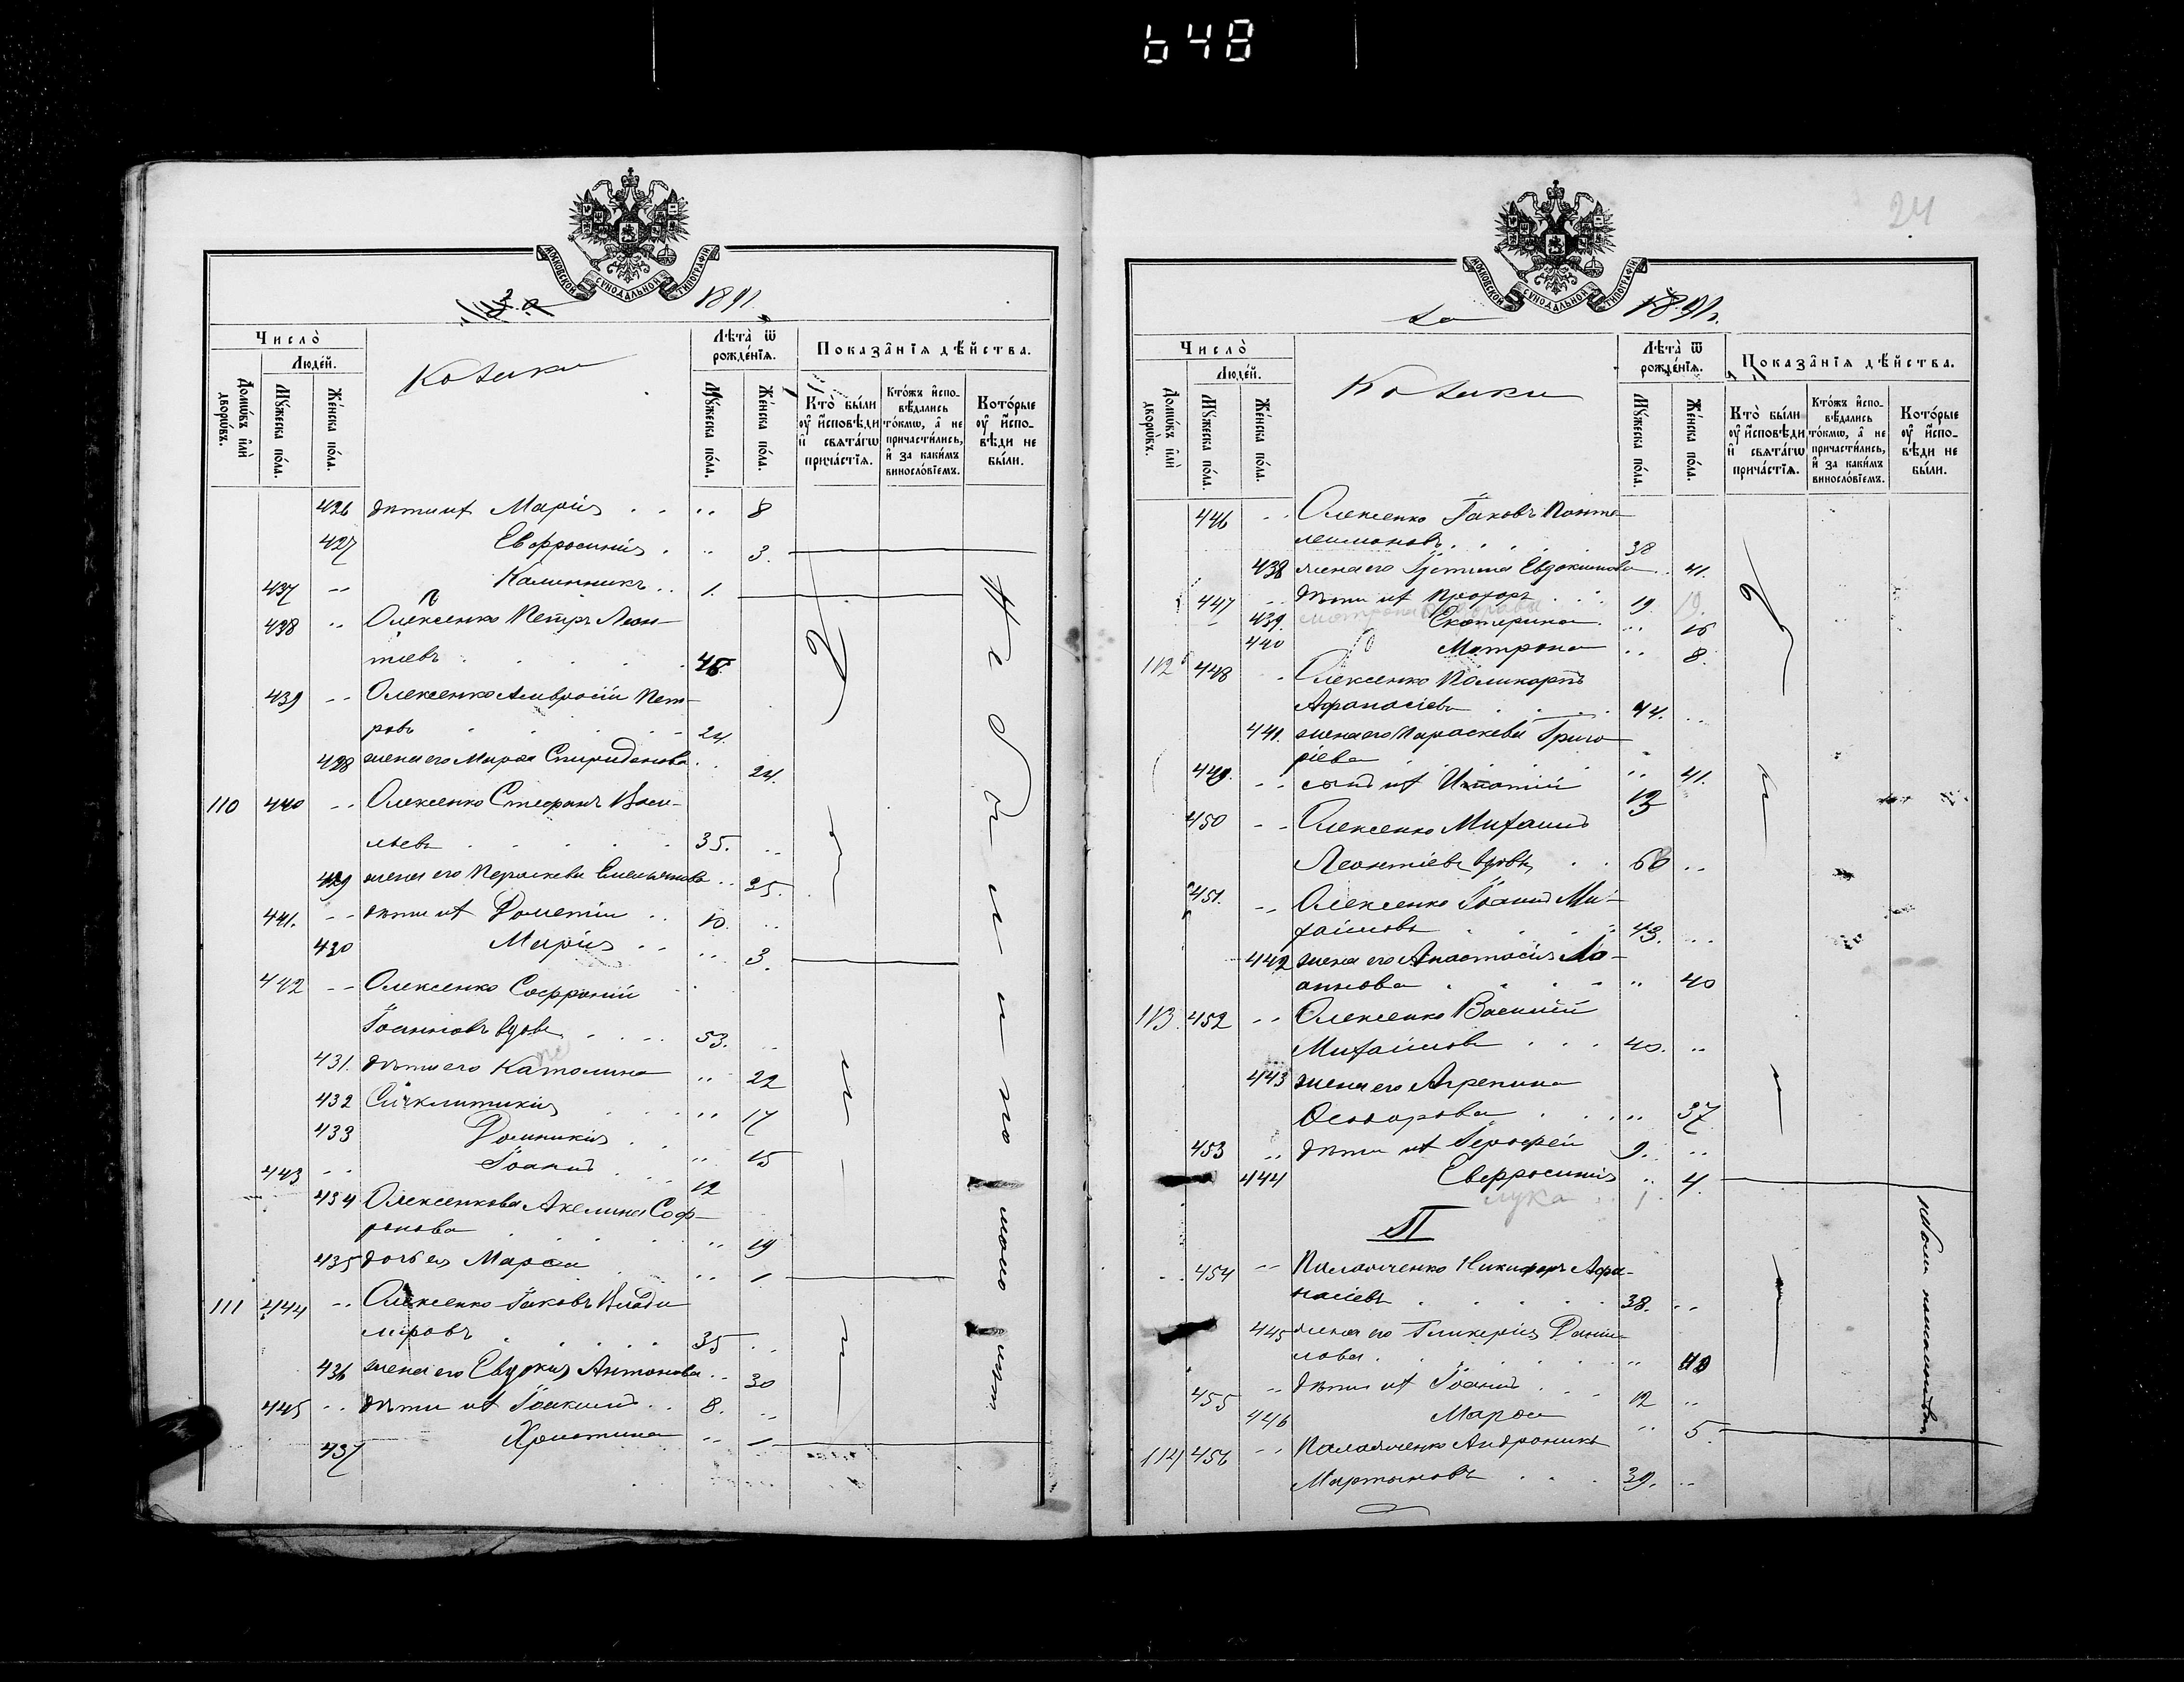 648
МОСКОВСКОЙ СѴНОДАЛЬНОЙ ТИПОГРАФІИ
1891
Число̀
Людей.
Домѡвъ и҆лѝ дворѡвъ.
Мꙋжеска по́ла.
Же́нска по́ла.
Козаки
Лѣта̀ ѿ рожде́нїѧ.
Мꙋжеска по́ла.
Же́нска по́ла.
Показа̑нїѧ дѣ́йства.
Кто̀ бы́ли ᲂу҆ и҆́сповѣди и҆ свѧта́гѡ прича́стїѧ.
Кто́жъ и҆спо­вѣдались то́кмѡ, а҆ не причасти́лись, и҆ за каки́мъ винослѻ́вїемъ.
Кото́рые ᲂу҆ и҆́спо­вѣди не бы́ли.
426 дѣти их Марія .. 8
427 Евфросинія .. 3.
437 .. Калинникъ .. 1.
438 .. Олексенко Петръ Леон-
тіевъ 48
439 .. Олексенко Амвросій Пет-
ровъ 24.
428 жена его Марѳа Спиридонова .. 24.
110 440 .. Олексенко Стефанъ Васи-
льевъ 35. ..
429 жена его Параскева Емельянова .. 25.
441. .. дѣти их Дометій .. 10. ..
430 Марія .. 3.
442 .. Олексенко Софроній
Іоанновъ вдовъ 53. ..
431. дѣти его Католина .. 22
432 Синклитикія .. 17
433 Домникія .. 15
443 .. Іоаннъ 12
434 Олексенкова Акелина Соф-
ронова .. 19
435 дочь ея Марѳа .. 1
111 444 .. Олексенко Іаковъ Влади
міровъ 35 ..
436 жена его Евдокія Антонова .. 30
445 .. дѣти их Іоакимъ .. 8. ..
437 Христина .. 1
Не были по мало лѣт
24
МОСКОВСКОЙ СѴНОДАЛЬНОЙ ТИПОГРАФІИ
За 1891г.
Число̀
Людей.
Домѡвъ и҆лѝ дворѡвъ.
Мꙋжеска по́ла.
Же́нска по́ла.
Козаки
Лѣта̀ ѿ рожде́нїѧ.
Мꙋжеска по́ла.
Же́нска по́ла.
Показа̑нїѧ дѣ́йства.
Кто̀ бы́ли ᲂу҆ и҆́сповѣди и҆ свѧта́гѡ прича́стїѧ.
Кто́жъ и҆спо­вѣдались то́кмѡ, а҆ не причасти́лись, и҆ за каки́мъ винослѻ́вїемъ.
Кото́рые ᲂу҆ и҆́спо­вѣди не бы́ли.
446 .. Олексенко Іаковъ Панте
леимоновъ 38
438 жена его Іустина Евдокимова .. 41.
447 .. дѣти их Прохоръ 19.
матрона 19.
439. Екатерина .. 16
440 Матрона .. 8.
112 448 .. Олексенко Поликарпъ
Афанасіевъ 44. ..
441. жена его Параскева Григо
ріева .. 41.
449. .. сынъ их Ипатій 13
450 .. Олексенко Михаилъ
Леонтіевъ вдовъ 66 ..
451. .. Олексенко Іоаннъ Ми-
хаиловъ 43. ..
442 жена его Анастасія Іо-
аннова .. 40
113. 452 .. Олексенко Василій
Михаиловъ 40. ..
443 жена его Агрепина
Ѳеодорова .. 37
453 .. дѣти их Іероѳей 9. ..
444 Евфросинія .. 4.
лука 1
П
454 .. Паламаренко Никифоръ Афа-
насіевъ 38. ..
445 жена его Гликерія Дани-
лова .. 40
455 .. дѣти их Іоаннъ 12 ..
446 Марѳа .. 5.
114 456 .. Паламаренко Андроникъ
Мартыновъ 39. ..